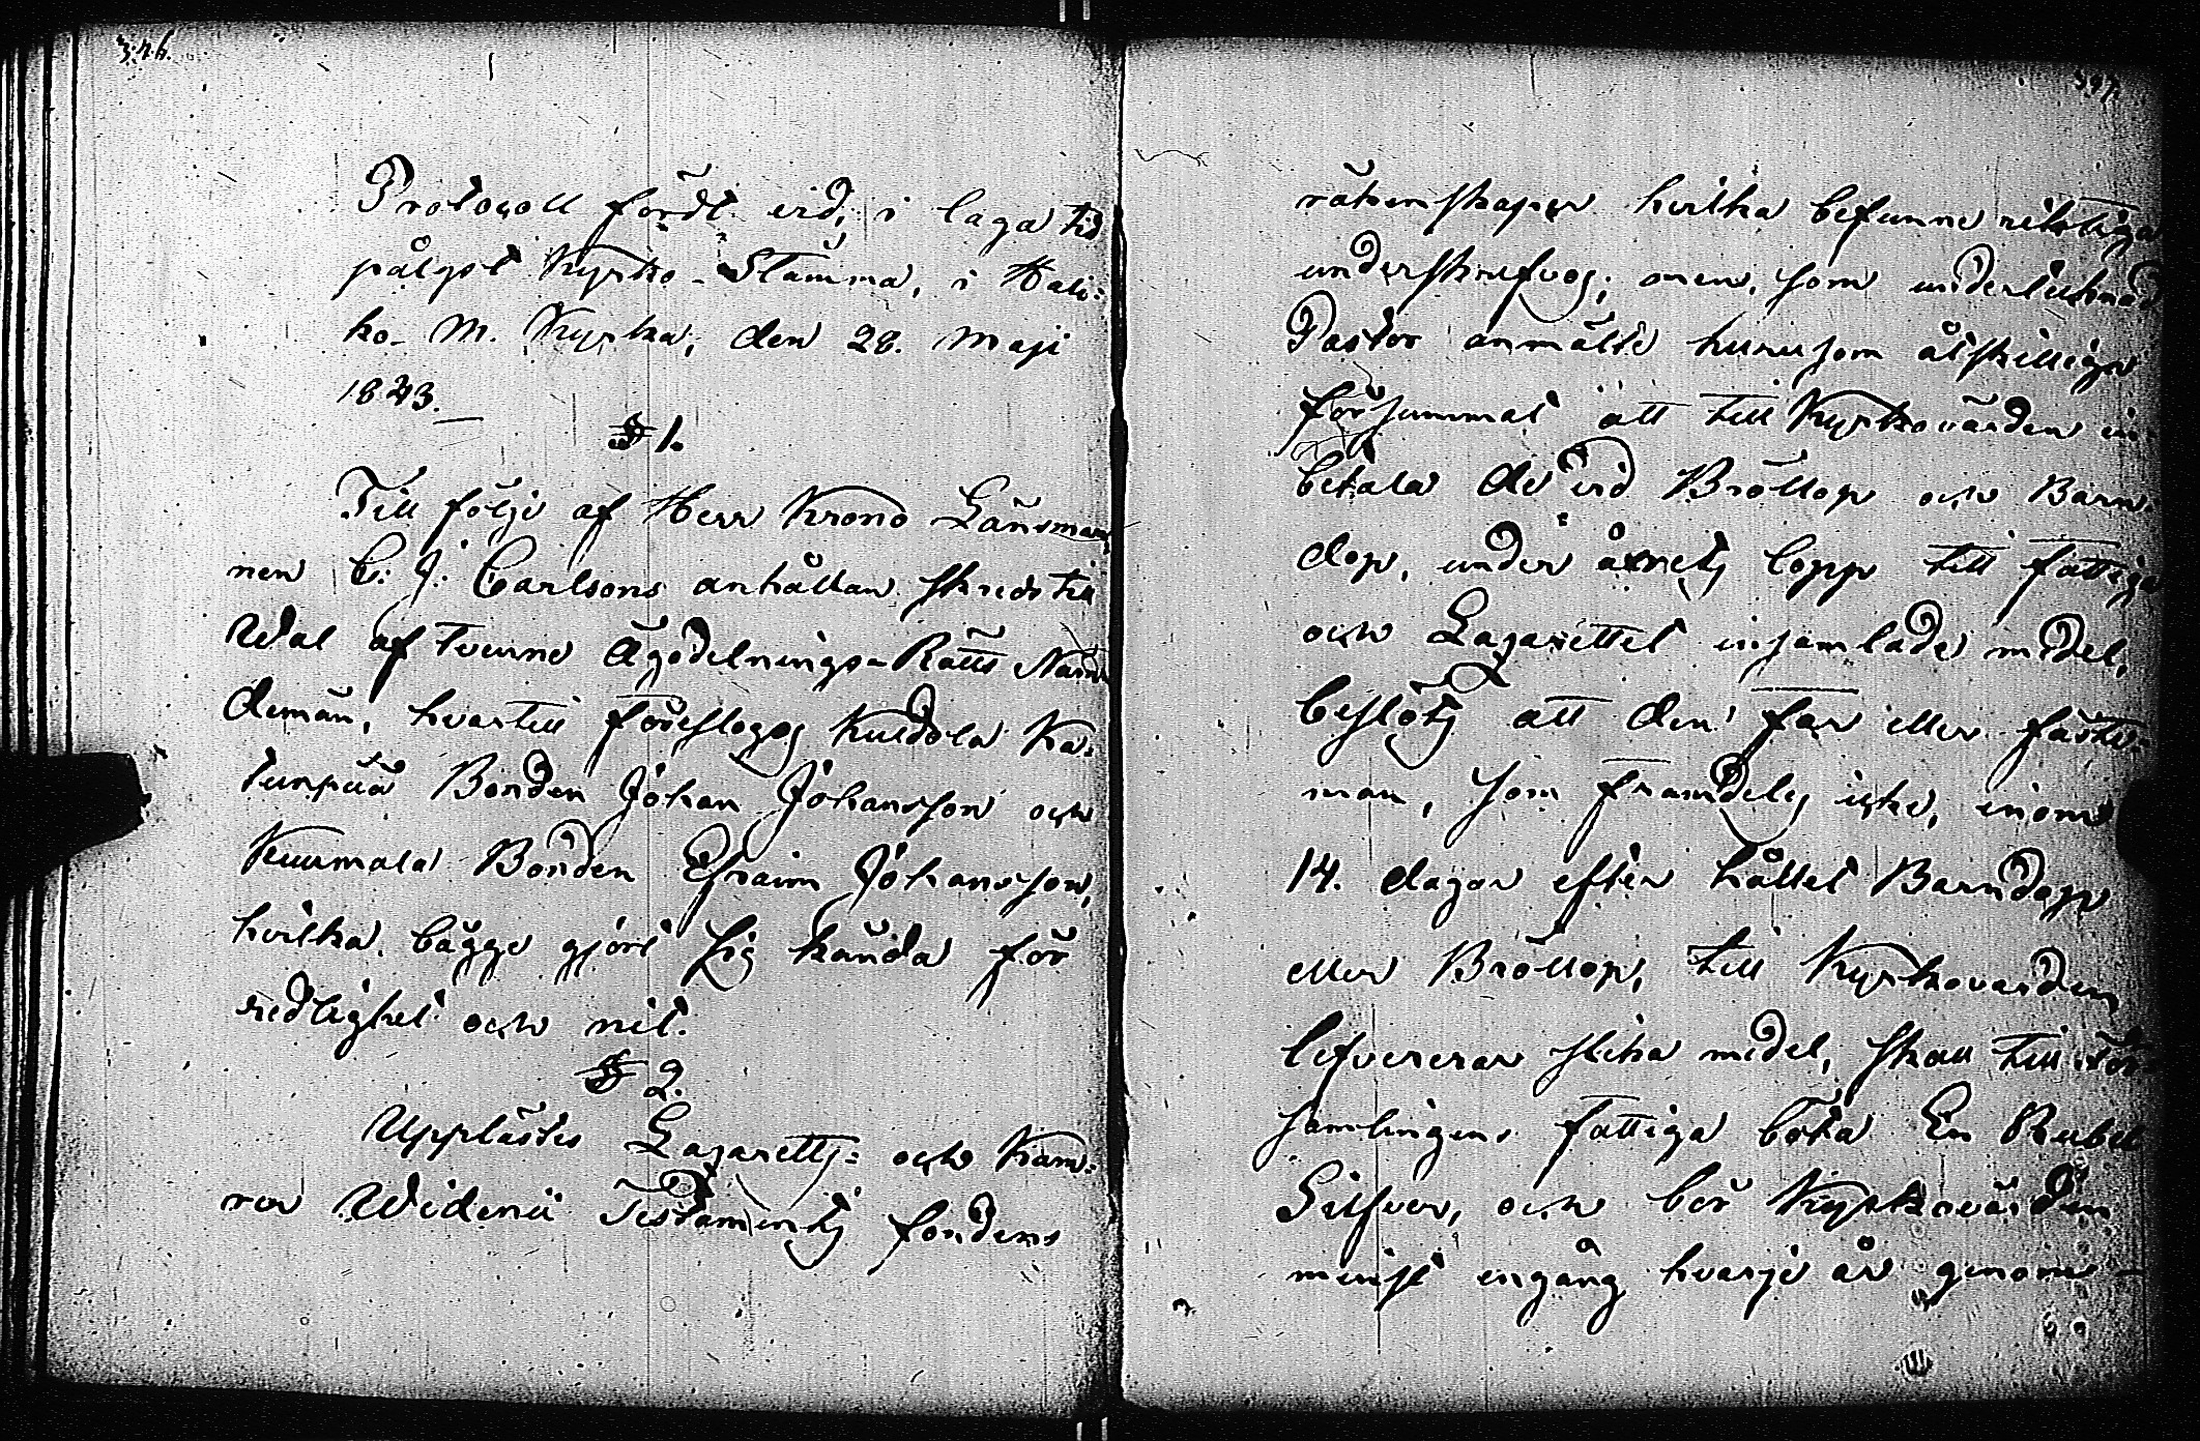 346.
Protocoll fördt vid, i laga tid
pålyst Kyrko-Stämma, i Hali=
ko M. Kyrka, den 28. Maji
1843.
§ 1.
Till följe af Herr Krono Länsman
nen C: J: Carlsons anhållan skreds till
Wal af tvenne Ägodelnings-Rätts Nämn
demän, hvartill föreslogos Kuddola Ka=
tunpää Bonden Johan Johansson och
Kuurmala Bonden Efraim Johansson,
hvilka bägge gjort sig kända för
redlighet och nit.
§ 2.
Upplästes Lazaretts= och Kam=
rer Widenii Testaments fondens
347.
räkenskaper hvilka befunne riktiga
underskrefvos; men, som undertecknad
Pastor anmälte hurusom åtskillige
försummat att till Kyrkovärden in
betala de vid Bröllop och Barn
dop, under årets lopp till fattiga
och Lazarettet insamlade medel,
beslöts att den far eller fäste=
man, som framdeles icke, inom
14. dagar efter hållet Barndop
eller Bröllop, till Kyrkovärden
lefvererar slika medel, skall till för
samlingens fattiga böta En Rubel
Silfver, och bör Kyrkovärden
minst engång hvarje år genom